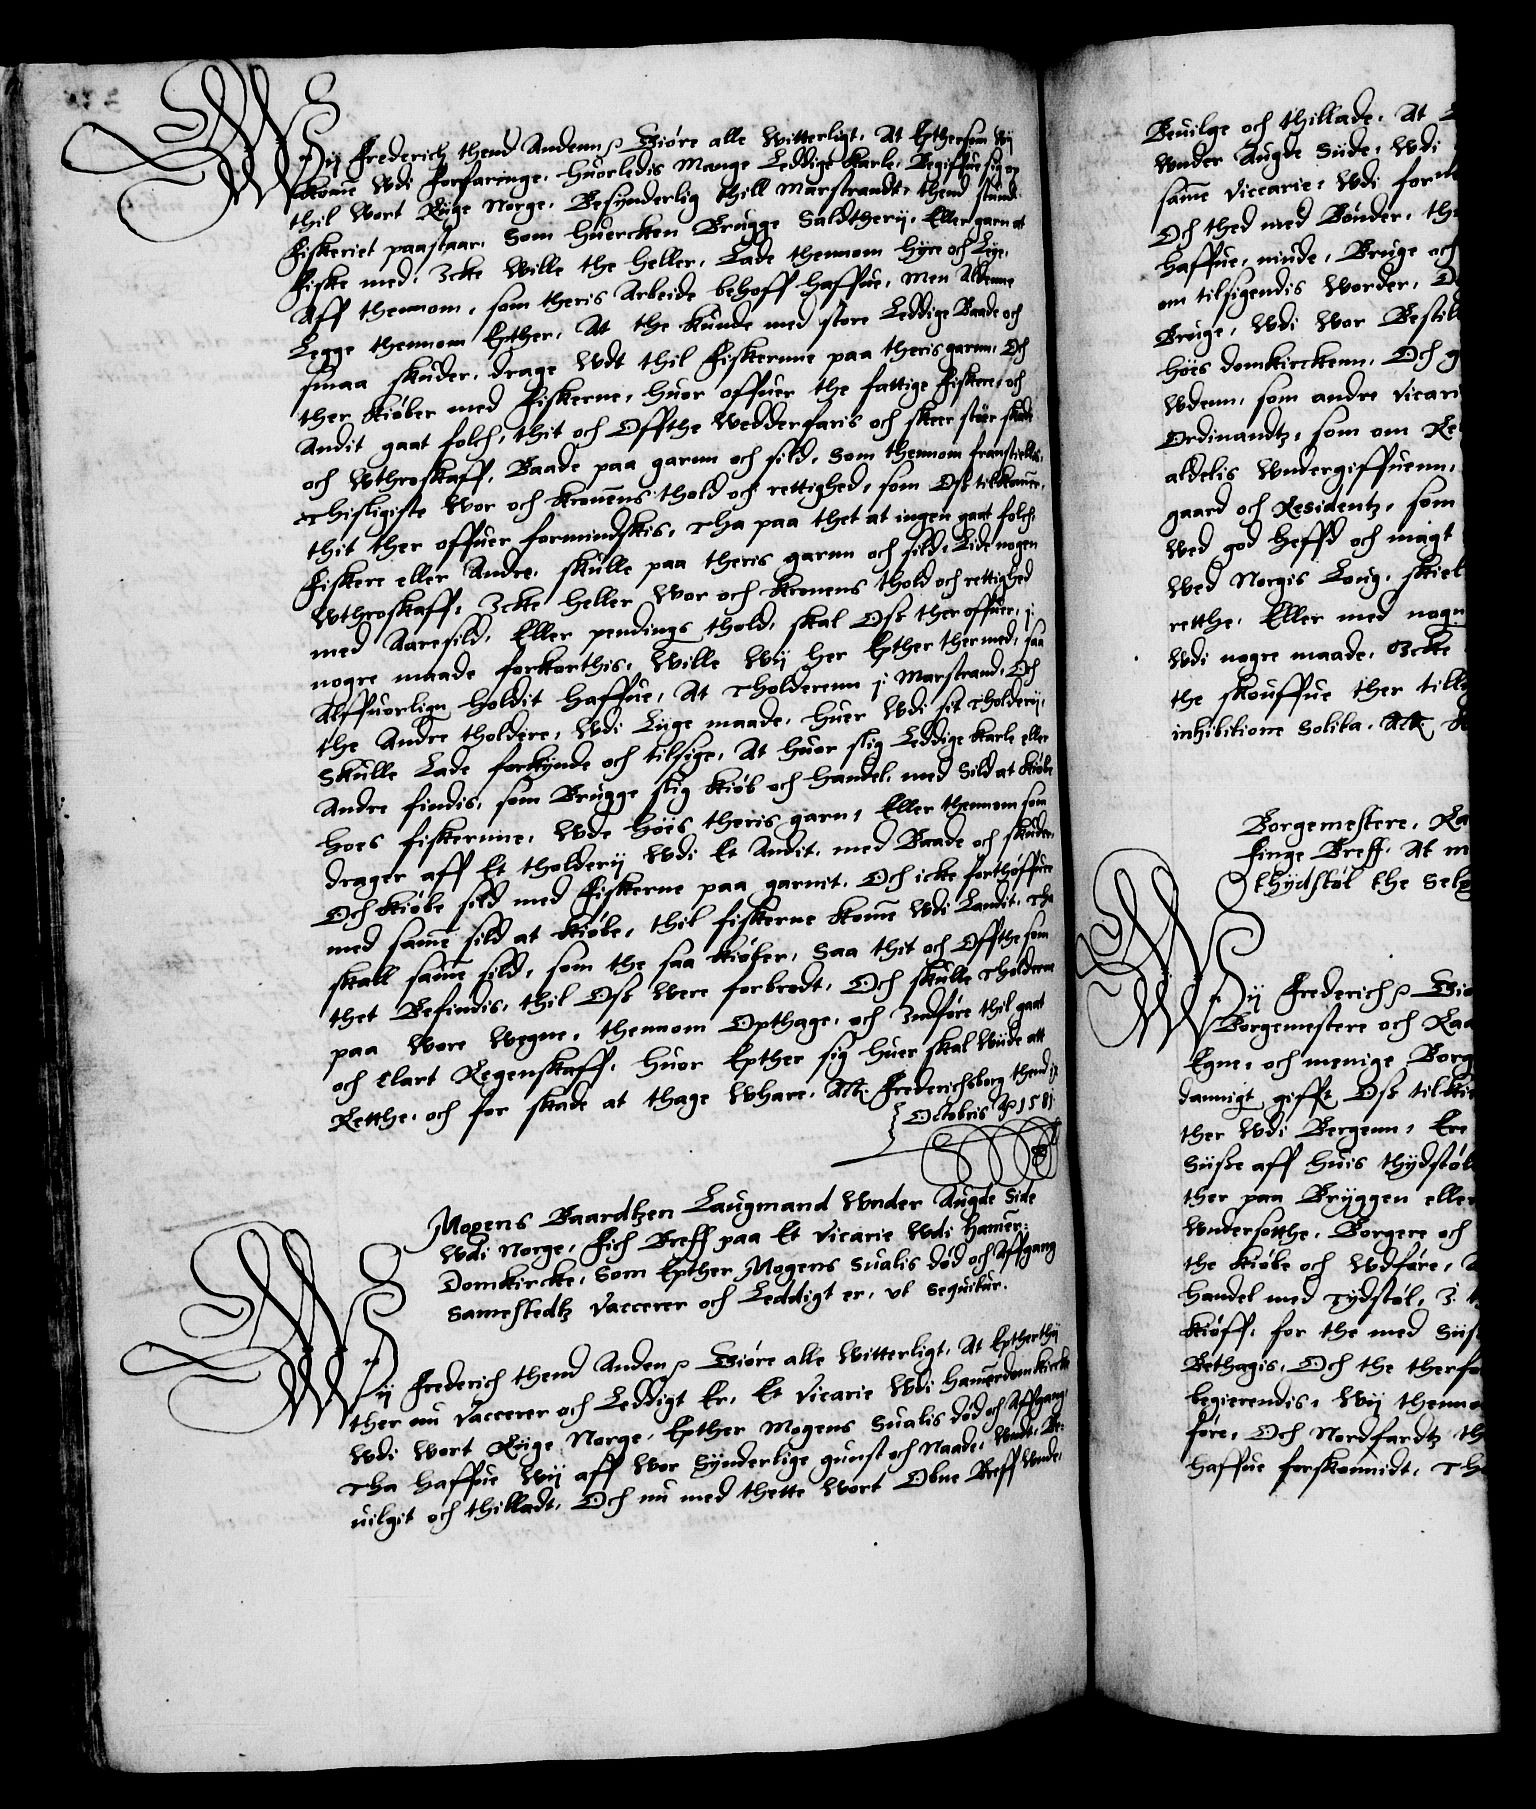 Wij Frederich thend Andenn Giøre alle witterligt, At Epthersom wij
komme wdi forfaringe, huorledis Mange Leddige karle, Begiffue sig op
thil wort Riige Norge, Besynderlig thill Marstrandt, thend stund
fiskeriet paastaar, Som huercken Brugge Saldtherij, Eller garn at
fiske med, Icke wille the heller, Lade thennom hyre och Leye,
Aff thennom, som theris Arbeide behoff haffue, Men Allenne
Legge thennom Epther, At the kunde med store Leddige Baade och
smaa skuder, drage wdt thil fiskernne paa theris garnn, Och
ther kiøber med fiskerne, huor offuer the fattige fiskere, och
Andit gaat folch, thit och Offthe wedderfaris och skeer stoer skade
och wthroskaff, Baade paa garnn och sild, som thennom franstielles,
Thisligiste wor och kronens thold och rettighed, som Oss tilkomer,
thit ther offuer formindskis, Tha paa thet at ingen gaat folch,
fiskere eller Andre, skulle paa theris garnn och sild, Lide nogen
wthroskaff, Icke heller wor och kronens thold och rettighed
med Aaresild, Eller pendings thold, skal Oss ther offuer, j
nogre maade forkorthis, wille wij her Epther thermed, saa
Alffuorlign holdit haffue, At Tholderenn j Marstrand, Och
the Andre tholdere, wdi Liige maade, huer wdi sit Tholderij,
Skulle Lade forkynde och tilsige, At huor slig Leddige karle eller
Andre findis, som Brugge slig kiøb och handel, med Sild at kiøbe
hoes fiskernne, wde hoes theris garn, Eller thennom som
drager aff Et tholderij wdi Et Andit, med Baade och skuder,
Och kiøbe sild med fiskerne paa garnit, Och icke forthøffue
med samme sild at kiøbe, thil fiskerne komme wdi Landit, Tha
skall samme sild, som the saa kiøber, Saa thit och Offthe som
thet Befindis, thil Oss were forbrodt, Och skulle Tholderne
paa wore wegne, thennom Opthage, och Indføre thil gaat
och clart Regenskaff, huor Epther sig huer skal wiide att
Retthe, och for skade at thage whare, Actum Frederichsborg thend
Octobris 1581

Mogens Baardtzen Laugmand wnder Augde Side
wdi Norge, fich Breff paa Et Vicarie wdi Hamer
Domkircke, som Epther Mogens Sualis død och Affgang
samestedtz Vaccerer och Leddigt er, ut sequitur.

Wij Frederich thend Anden Giøre alle witterligt, At Eptherthij
ther nu Vaccerer och Leddigt Er, Et Vicarie wdi Hamerdomkircke
wdi wort Riige Norge, Epther Mogens Sualis død och Affgang,
Tha haffue wij aff wor Synderlige gunst och Naade, wndt, Be-
uilgit och thilladt, Och nu med thette wort Obne Breff wnde,

Beuilge och thillade, At
wnder Augde Siide, wdi
samme Viccarie, wdi
Och thed med Bønder,
haffue, niude, Bruge och
om tilsigendis worder,
Bruge, wdi wor
høes domkirckenn, Och
wdenn, som andre
Ordinandtz, som om
aldelis wndergiffuenn,
gaard och Residentz, som
wed god heffd och magt
wed Norgis Loug, skiel
retthe, Eller med
wdi nogre maade, Icke
the skouffue ther
inhibitione Solita, Act

Borgemestere,
finge Breff, At
thydstøl the

Wij Frederich
Borgemestere och
Egne, och menige
dannigt gifft Oss
ther wdi Bergenn, Ere
Siisse aff huis
ther paa Bryggen eller
wndersotthe, Borgere och
the kiøbe och wdføre,
handel med Tydstøl,
kiøff, for the med
Bethagis, Och the
begierendis, wij
føre, Och Nordfardtz
haffue forskonnidt,